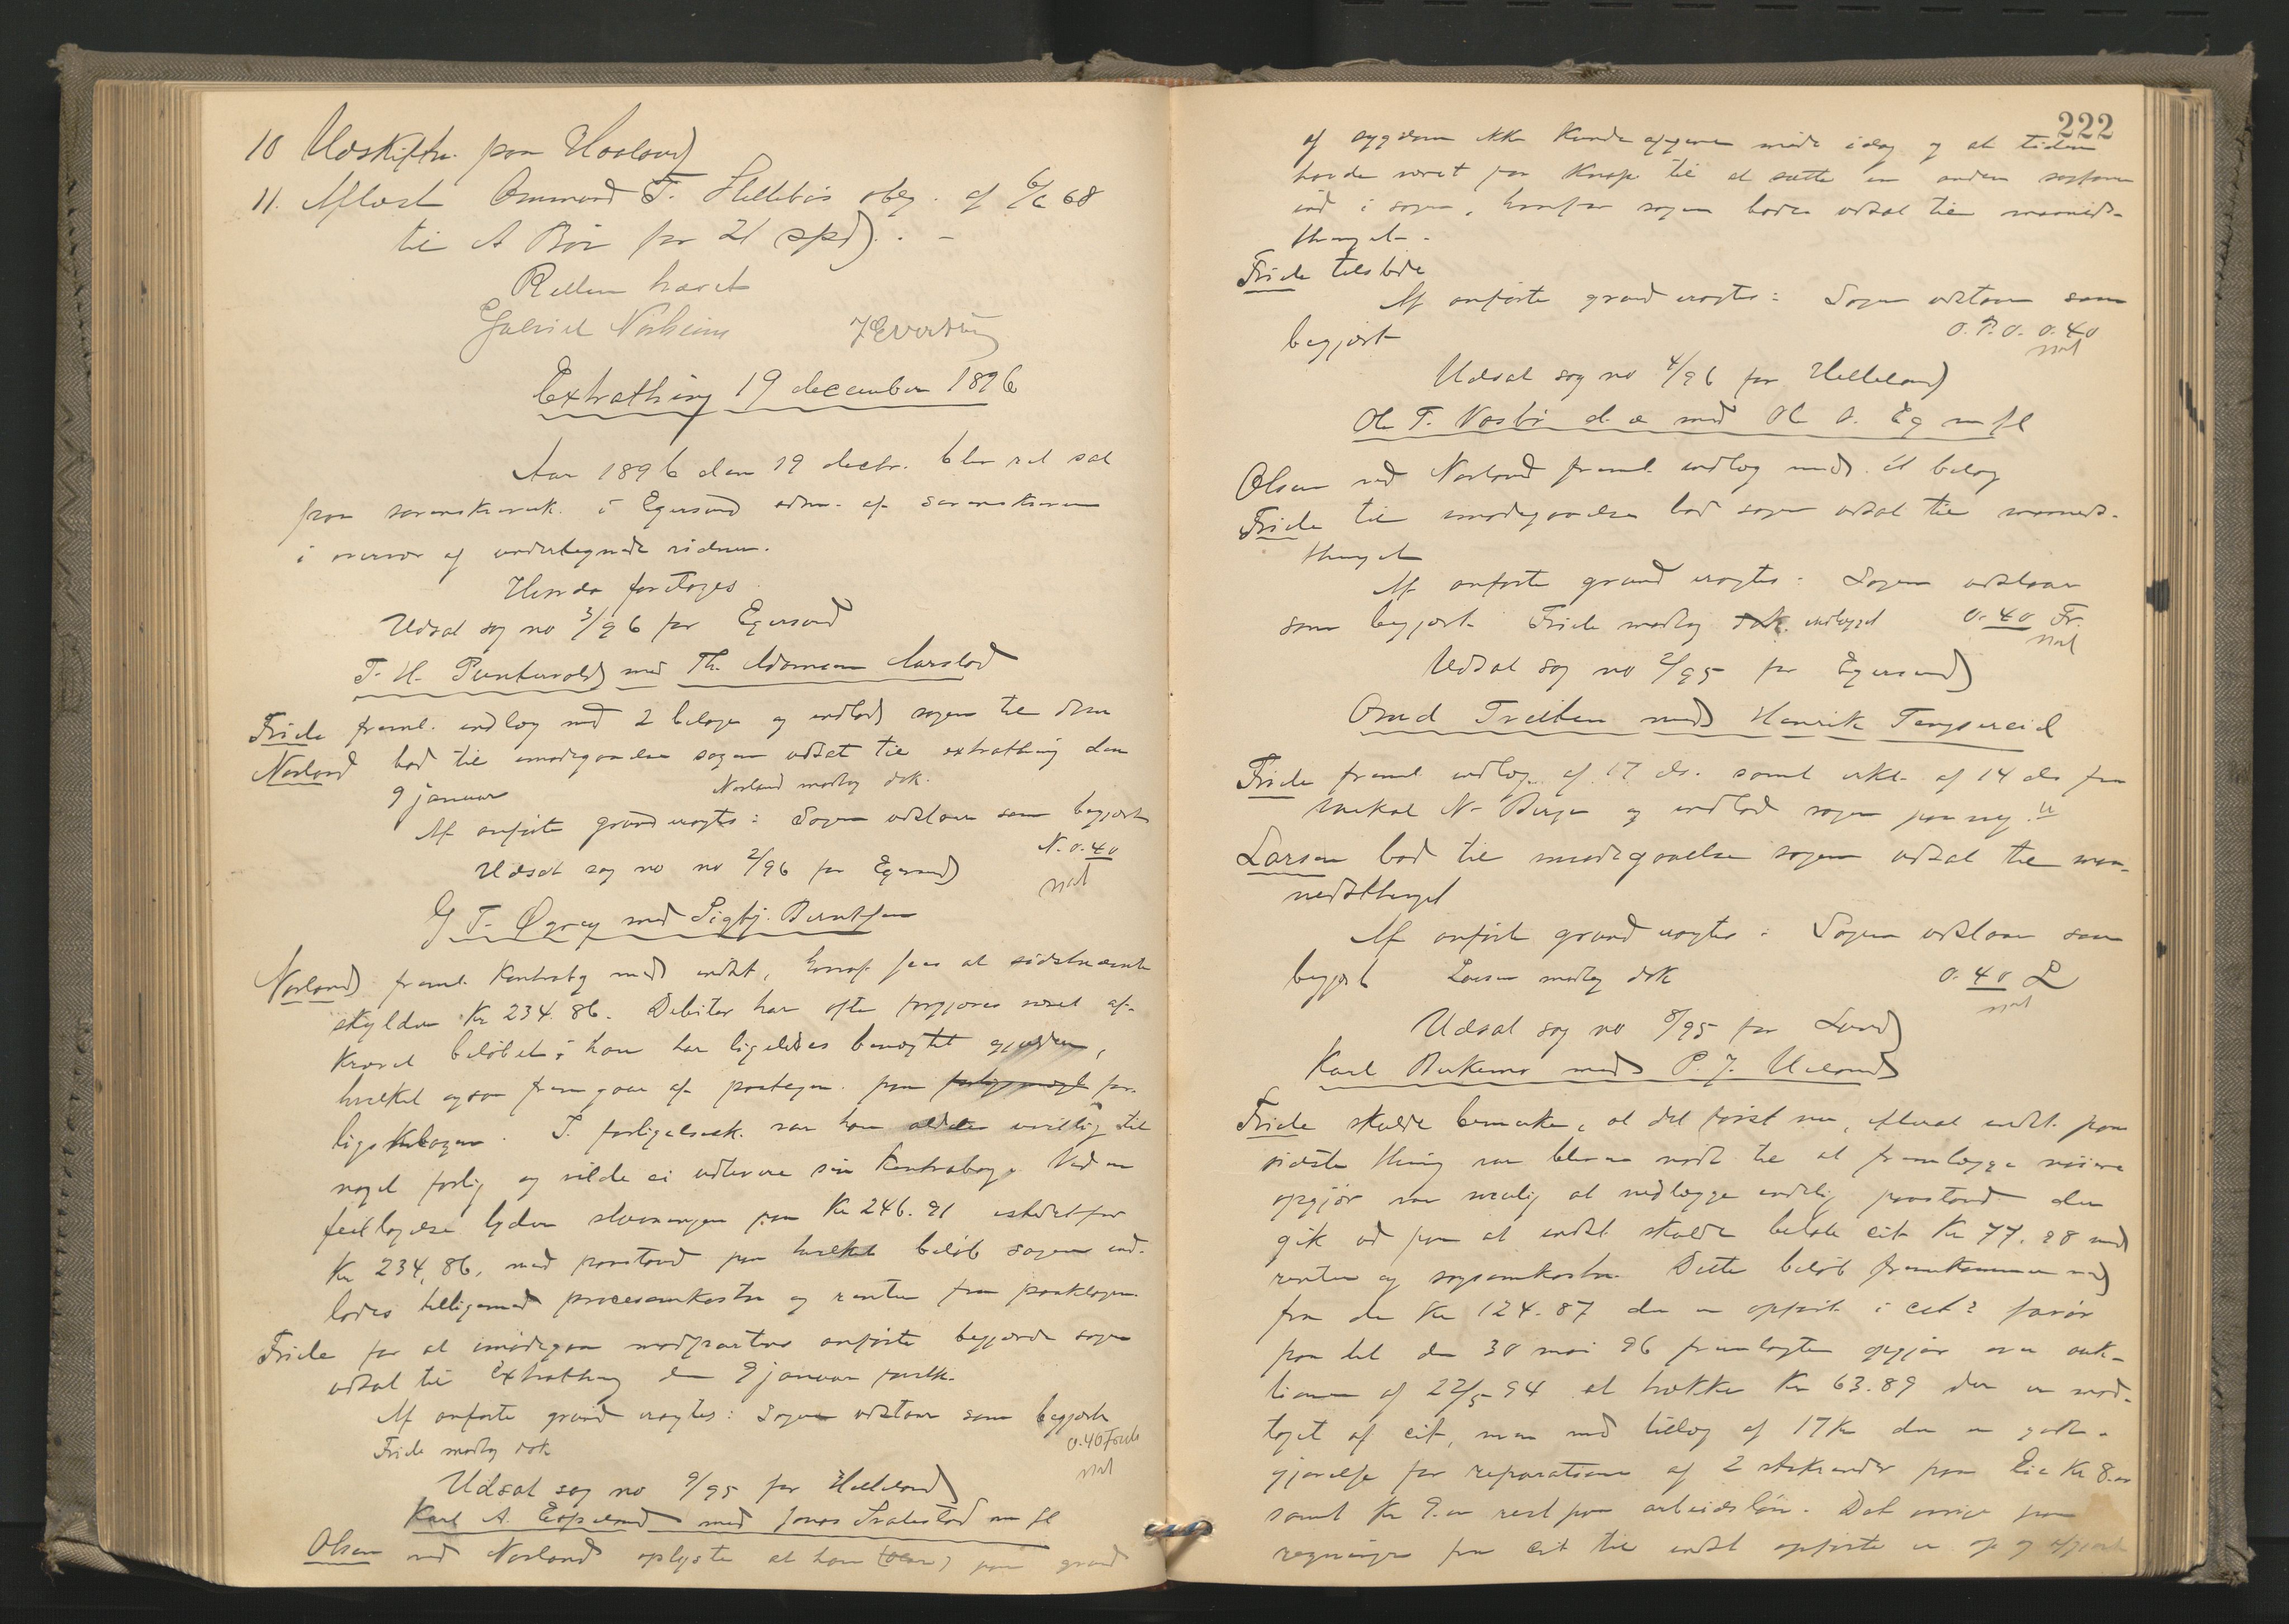 10 Udskiftn. paa Haaland
11. Aflæst Ommund T. Hellebös obg. af 6/6 68
til A Böe for 21 spd). -
Retten hævet
Gabriel Norheim
Extrathing 19 december 1896
Aar 1896 den 19 decbr. blev ret sat
paa sorenskriverk. i Egersund adm. af sorenskriveren
i overvær af undertegnede vidner.
Hvorda foretoges
Udsat sag no 3/96 for Egersund
T. H. Puntervold med Th. Adamsen Aarstad
Friele freml. indlæg med 2 bilage og indlod sagen til dom
Norland bad til imødegaaelse sagen udsat til extrathing den
9 januar
Norland modtog dok.
Af anførte grund vragtes: Sagen udstaar som begjært
N. 0.40
Udsat sag no no 2/96 for Egersund
G T. Øgrey med Sigbj. Berntsen
Norland freml. Kontrabog med indst, hvoraf sees at sidstnævnte
skylder Kr 234.86. Debitor har ofte forgjæves været af-
krævet beløbet; han har ligeledes benægtet gjælden,
hvilket ogsaa fremgaar af paategn. paa for-
ligsklagen. I forligelsesk. var han aldeles uvillig til
noget forlig og vilde ei udlevere sin Kontrabog. Ved en
feiltagelse lyder stævningen paa Kr 246.91 istedetfor
Kr 234,86, med paastand paa hvilket beløb sagen ind-
lodes tilligemed procesomkostn og renter fra paaklagen.
Friele for at imødegaa modpartens anførte begjærede sagen
udsat til Extrathing den 9 januar
Af anførte grund vragtes: Sagen udstaar som begjært
Friele modtog dok
0.40 Friele
Udsat sag no 9/95 for Helleland
Karl A. Espeland med Jonas Svalestad m fl
Olsen ved Norland oplyste at han (Olsen) paa grund
222
af sygdom ikke kunde møde idag og at tiden
havde været for knap til at sætte en anden sagfører
ind i sagen, hvorfor sagen bades udsat til maaneds-
thinget.
Friele tilstede
Af anførte grund vragtes: Sagen udstaar som
begjært
0.40
Udsat sag no 4/96 for Helleland
Ole T. Næsbö d. æ med Ole O. Eg m fl
Olsen ved Norland freml. indlæg med ét bilag
Friele til imødegaaelse bad sagen udsat til maaneds-
thinget
Af anførte grund vragtes: Sagen udstaar
som begjært Friele modtog indlægget
0.40 Fr.
Udsat sag no 2/95 for Egersund
Omd Tveiten med Henrik Tengsereid
Friele freml indlæg af 17 ds. samt erkl. af 14 ds fra
Mikal N. Berge og indlod sagen paa ny
Larsen bad til imødegaaelse sagen udsat til maa-
nedsthinget
Af anførte grund vragtes: Sagen udstaar som
begjært Larsen modtog dok
0.40 L
Udsat sag no 8/95 for Lund
Karl Birkemo med P. J. Ueland
Friele skulde bemærke, at det først nu, efterat indst. paa
sidste thing var bleven nødt til at fremlægge nøiere
opgjør var mulig at nedlægge endelig paastand der
gik ud paa at indst skulde betale cit Kr 77.98 med
renter og sagsomkostn. Dette beløb fremkommer ved
fra de Kr 124.87 der er opført i cit's favør
paa det den 30 mai 96 fremlagte opgjør over auk-
tionen af 22/5 94 at trække Kr 63.89 der er mod-
taget af cit, men med tillæg af 17 Kr der er godt-
gjørelse for reparationen af 2 paa Lie Kr 8.00
samt Kr 9.00 rest paa arbeidsløn. Det øvrige paa
regningen fra cit til indst opførte er op og afgjort